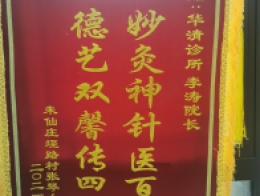 ：华清诊所 李涛院长
妙灸神针医百
德艺双馨传四
朱仙庄
路村张
二〇二